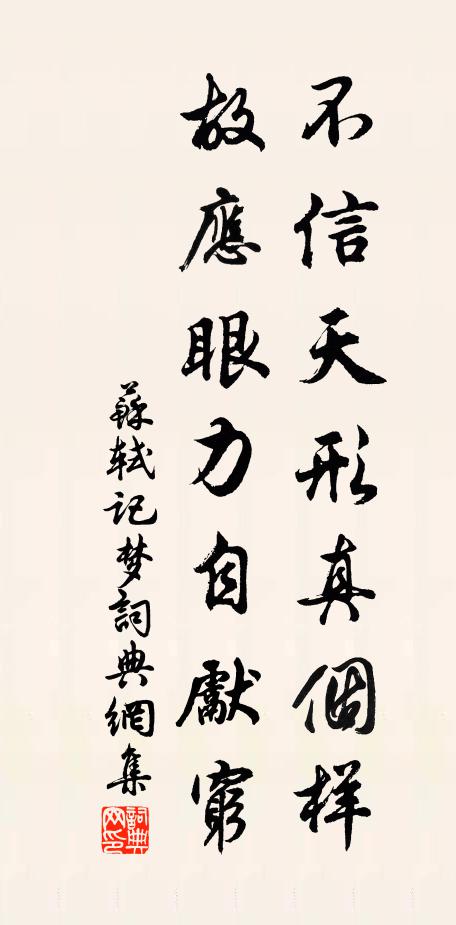 不信天形真個樣
故應眼力自獻窮
蘇軾記夢詞典網集
詞典网印